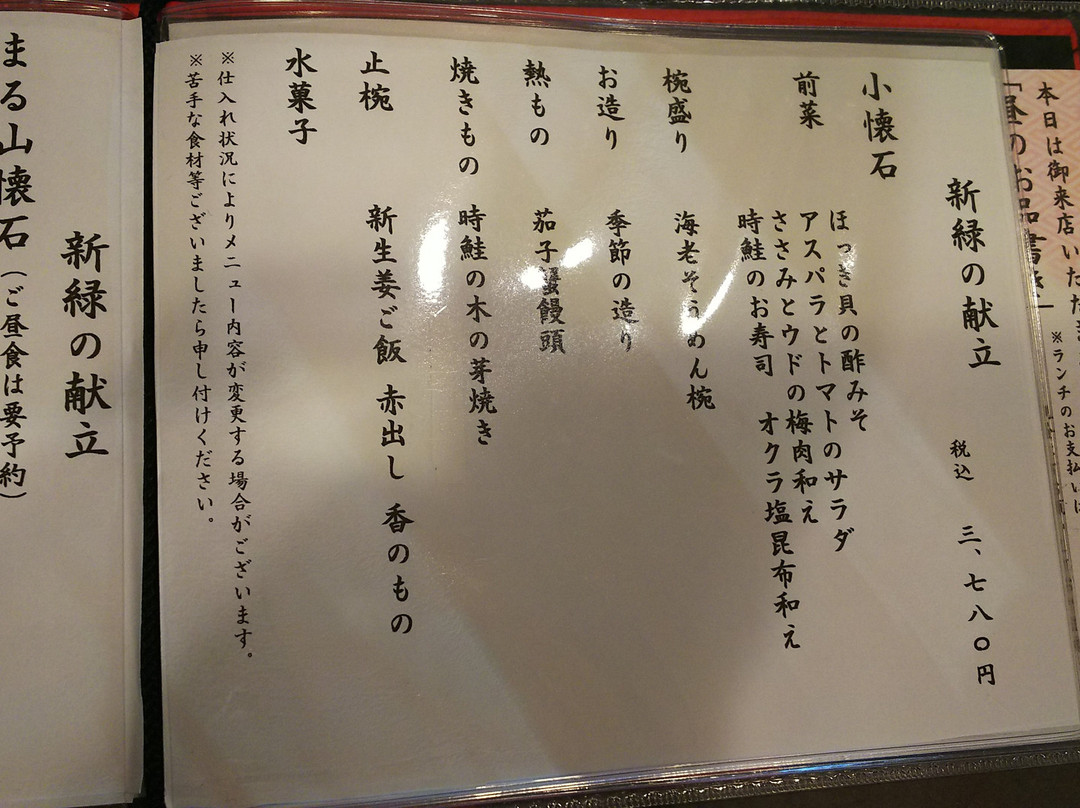 本日は御来店いただき
「昼のお品書き」
※ランチのお支払いは
新緑の献立 税込 三、七八〇円
小懐石
前菜 ほっき貝の酢みそ
アスパラとトマトのサラダ
ささみとウドの梅肉和え
時鮭のお寿司 オクラ塩昆布和え
椀盛り 海老そうめん椀
お造り 季節の造り
熱もの 茄子蟹饅頭
焼きもの 時鮭の木の芽焼き
止椀 新生姜ご飯 赤出し 香のもの
水菓子
※仕入れ状況によりメニュー内容が変更する場合がございます。
※苦手な食材等ございましたら申し付けください。
新緑の献立
まる山懐石(ご昼食は要予約)